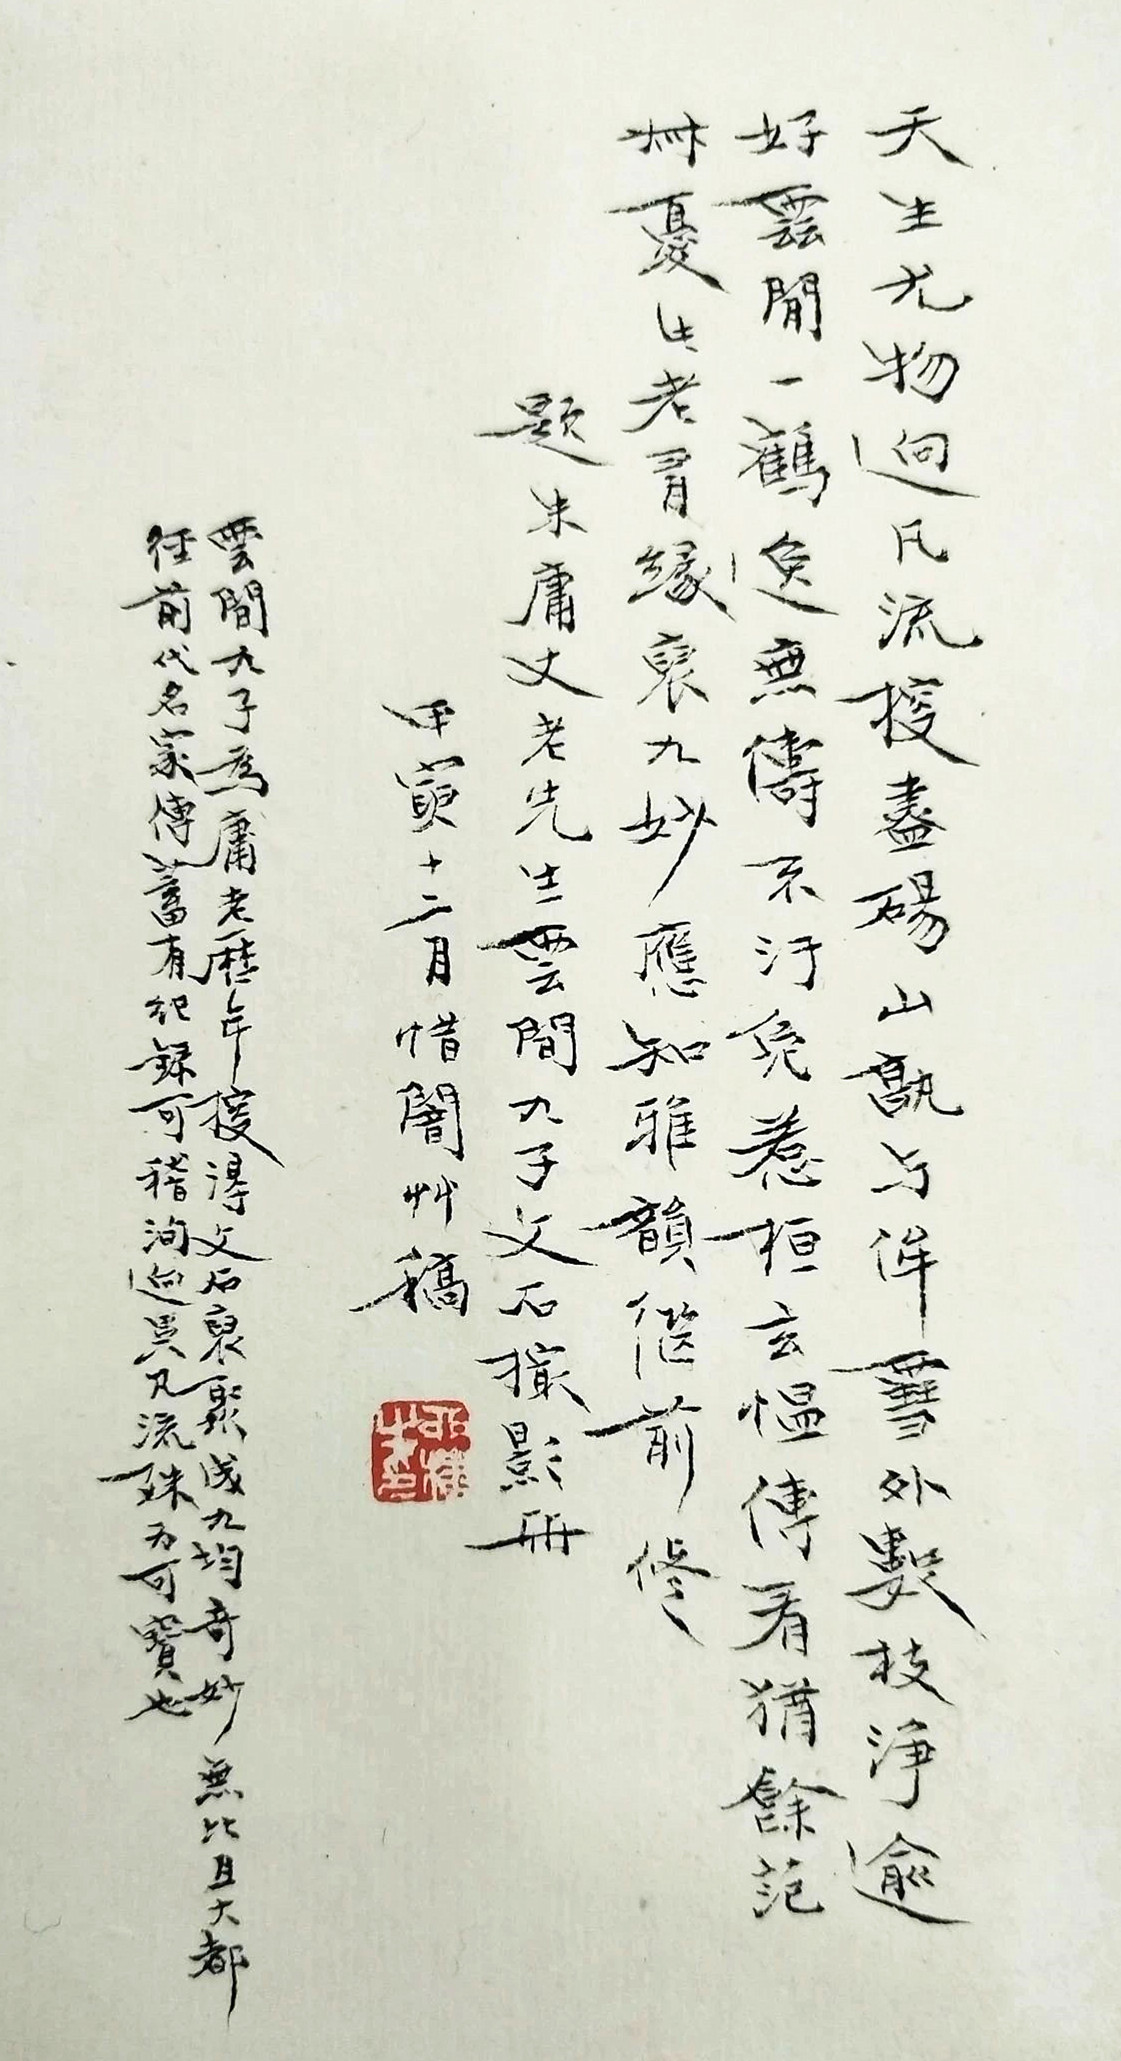 天生尤物迥凡流搜盡碭山孰与侔雪外數枝淨逾
好雲閒一鶴逸無儔不汙免惹桓玄愠傳看猶餘范
憂老有緣裒九妙應知雅韻繼前修
題朱庸丈老先生雲間九子文石撮影冊
甲寅十二月惜闇艸稿
雲間九子為庸老歷年搜得文石裒聚成九均奇妙無比且大都
經前代名家傳蓄有紀錄可稽洵迥異凡流殊為可寶也